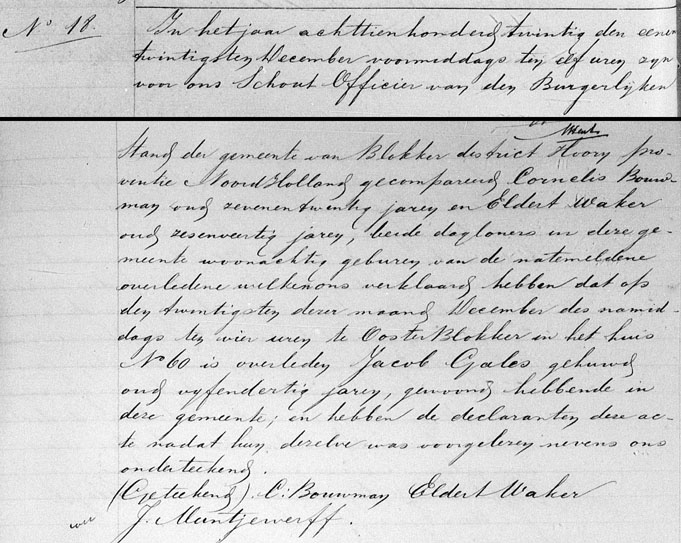 No 18.
In het jaar achttienhonderd twintig den eenen
twintigsten December voormiddags ten elf uren zyn
voor ons Schout Officier van den Burgerlyken
Stand der gemeente van Blokker district Hoorn pro-
ventie Noord Holland gecompareerd Cornelis Bouw-
man oud zevenentwintig jaren en Eldert Waker
oud zesenveertig jaren, beide dagloners in deze ge-
meente woonachtig geburen van de natemeldene
overledene welken ons verklaard hebben dat op
den twintigsten dezer maand December des namid-
dags ten vier uren te Ooster Blokker in het huis
No 60 is overleden Jacob Gales gehuwd
oud vyfendertig jaren, gewoond hebbende in
deze gemeente; en hebben de declaranten deze ac-
te nadat hun dezelve was voorgelezen nevens ons
onderteekend.
(Geteekend). C. Bouwman Eldert Waker
J. Muntjewerff.